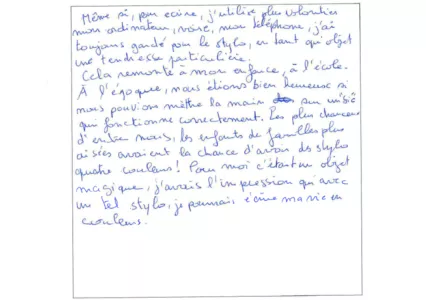 Même si, pour écrire, j'utilise plus volontiers
mon ordinateur, voire, mon téléphone, j'ai
toujours gardé pour le stylo, en tant qu'objet
une tendresse particulière.
Cela remonte à mon enfance, à l'école.
À l'époque, nous étions bien heureux si
nous pouvions mettre la main sur un bic
qui fonctionne correctement. Les plus chanceux
d'entre nous, les enfants de familles plus
aisées avaient la chance d'avoir des stylo
quatre couleurs ! Pour moi c'était un objet
magique, j'avais l'impression qu'avec
un tel stylo, je pourrais écrire ma vie en
couleurs.